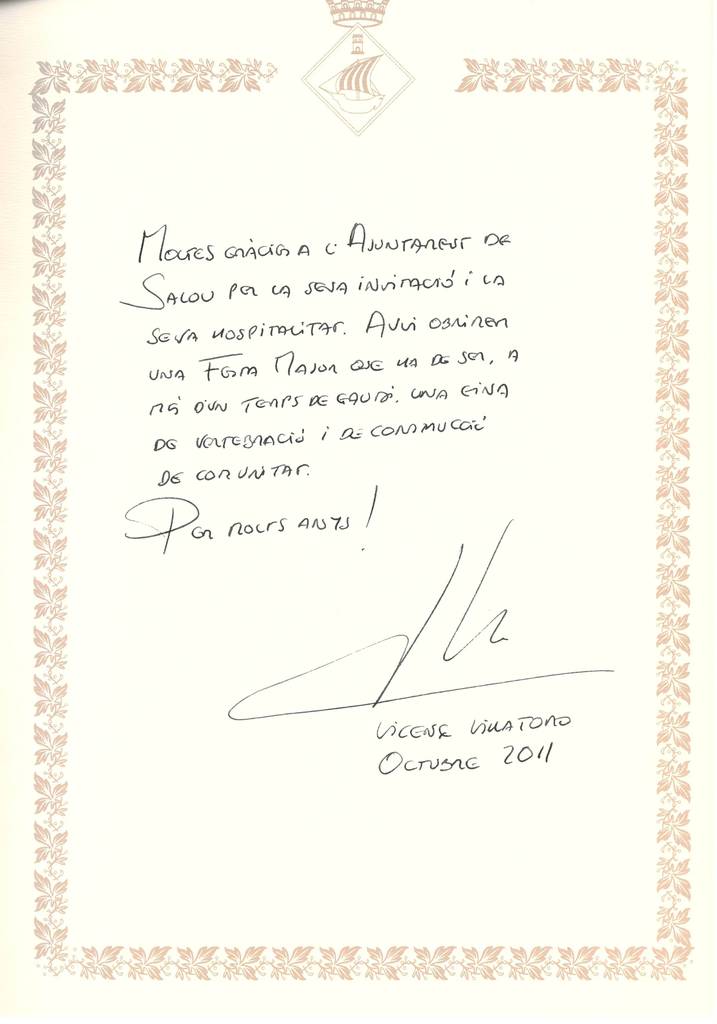 Moltes gràcies a l'Ajuntament de
Salou per la seva invitació i la
seva hospitalitat. Avui obrirem
una Festa Major que ha de ser, a
més d'un temps de gaudi, una eina
de vertebració i de construcció
de comunitat.
Per molts anys!
Vicenç Villatoro
Octubre 2011